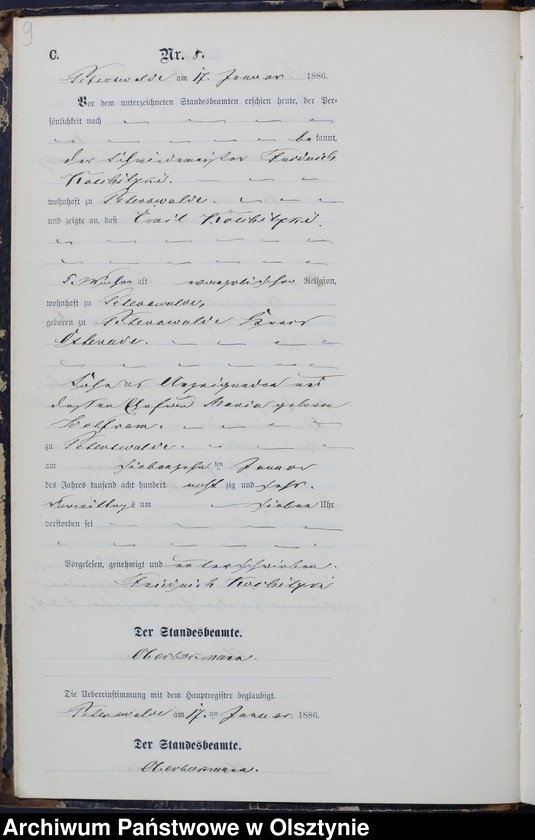 9
C.
Nr. 8.
Peterswalde am 17. Januar 1886.
Vor dem unterzeichneten Standesbeamten erschien heute, der Per-
sönlichkeit nach
be kannt,
der Schmiedemeister Friedrich
wohnhaft zu Peterswalde.
und zeigte an, daß Emil
5. Wochen alt evangelischer Religion,
wohnhaft zu Peterswalde,
geboren zu Peterswalde Kreis
Osterode.
Sohn des Anzeigenden und
dessen Ehefrau Maria geborene
Wolfram.
zu Peterswalde.
am siebenzehn ten Januar
des Jahres tausend acht hundert acht zig und sechs.
Vormittags um sieben Uhr
verstorben sei
Vorgelesen, genehmigt und unterschrieben.
Friedrich
Der Standesbeamte.
Die Uebereinstimmung mit dem Hauptregister beglaubigt.
Peterswalde am 17. ten Januar 1886.
Der Standesbeamte.
Archiwum Państwowe w Olsztynie